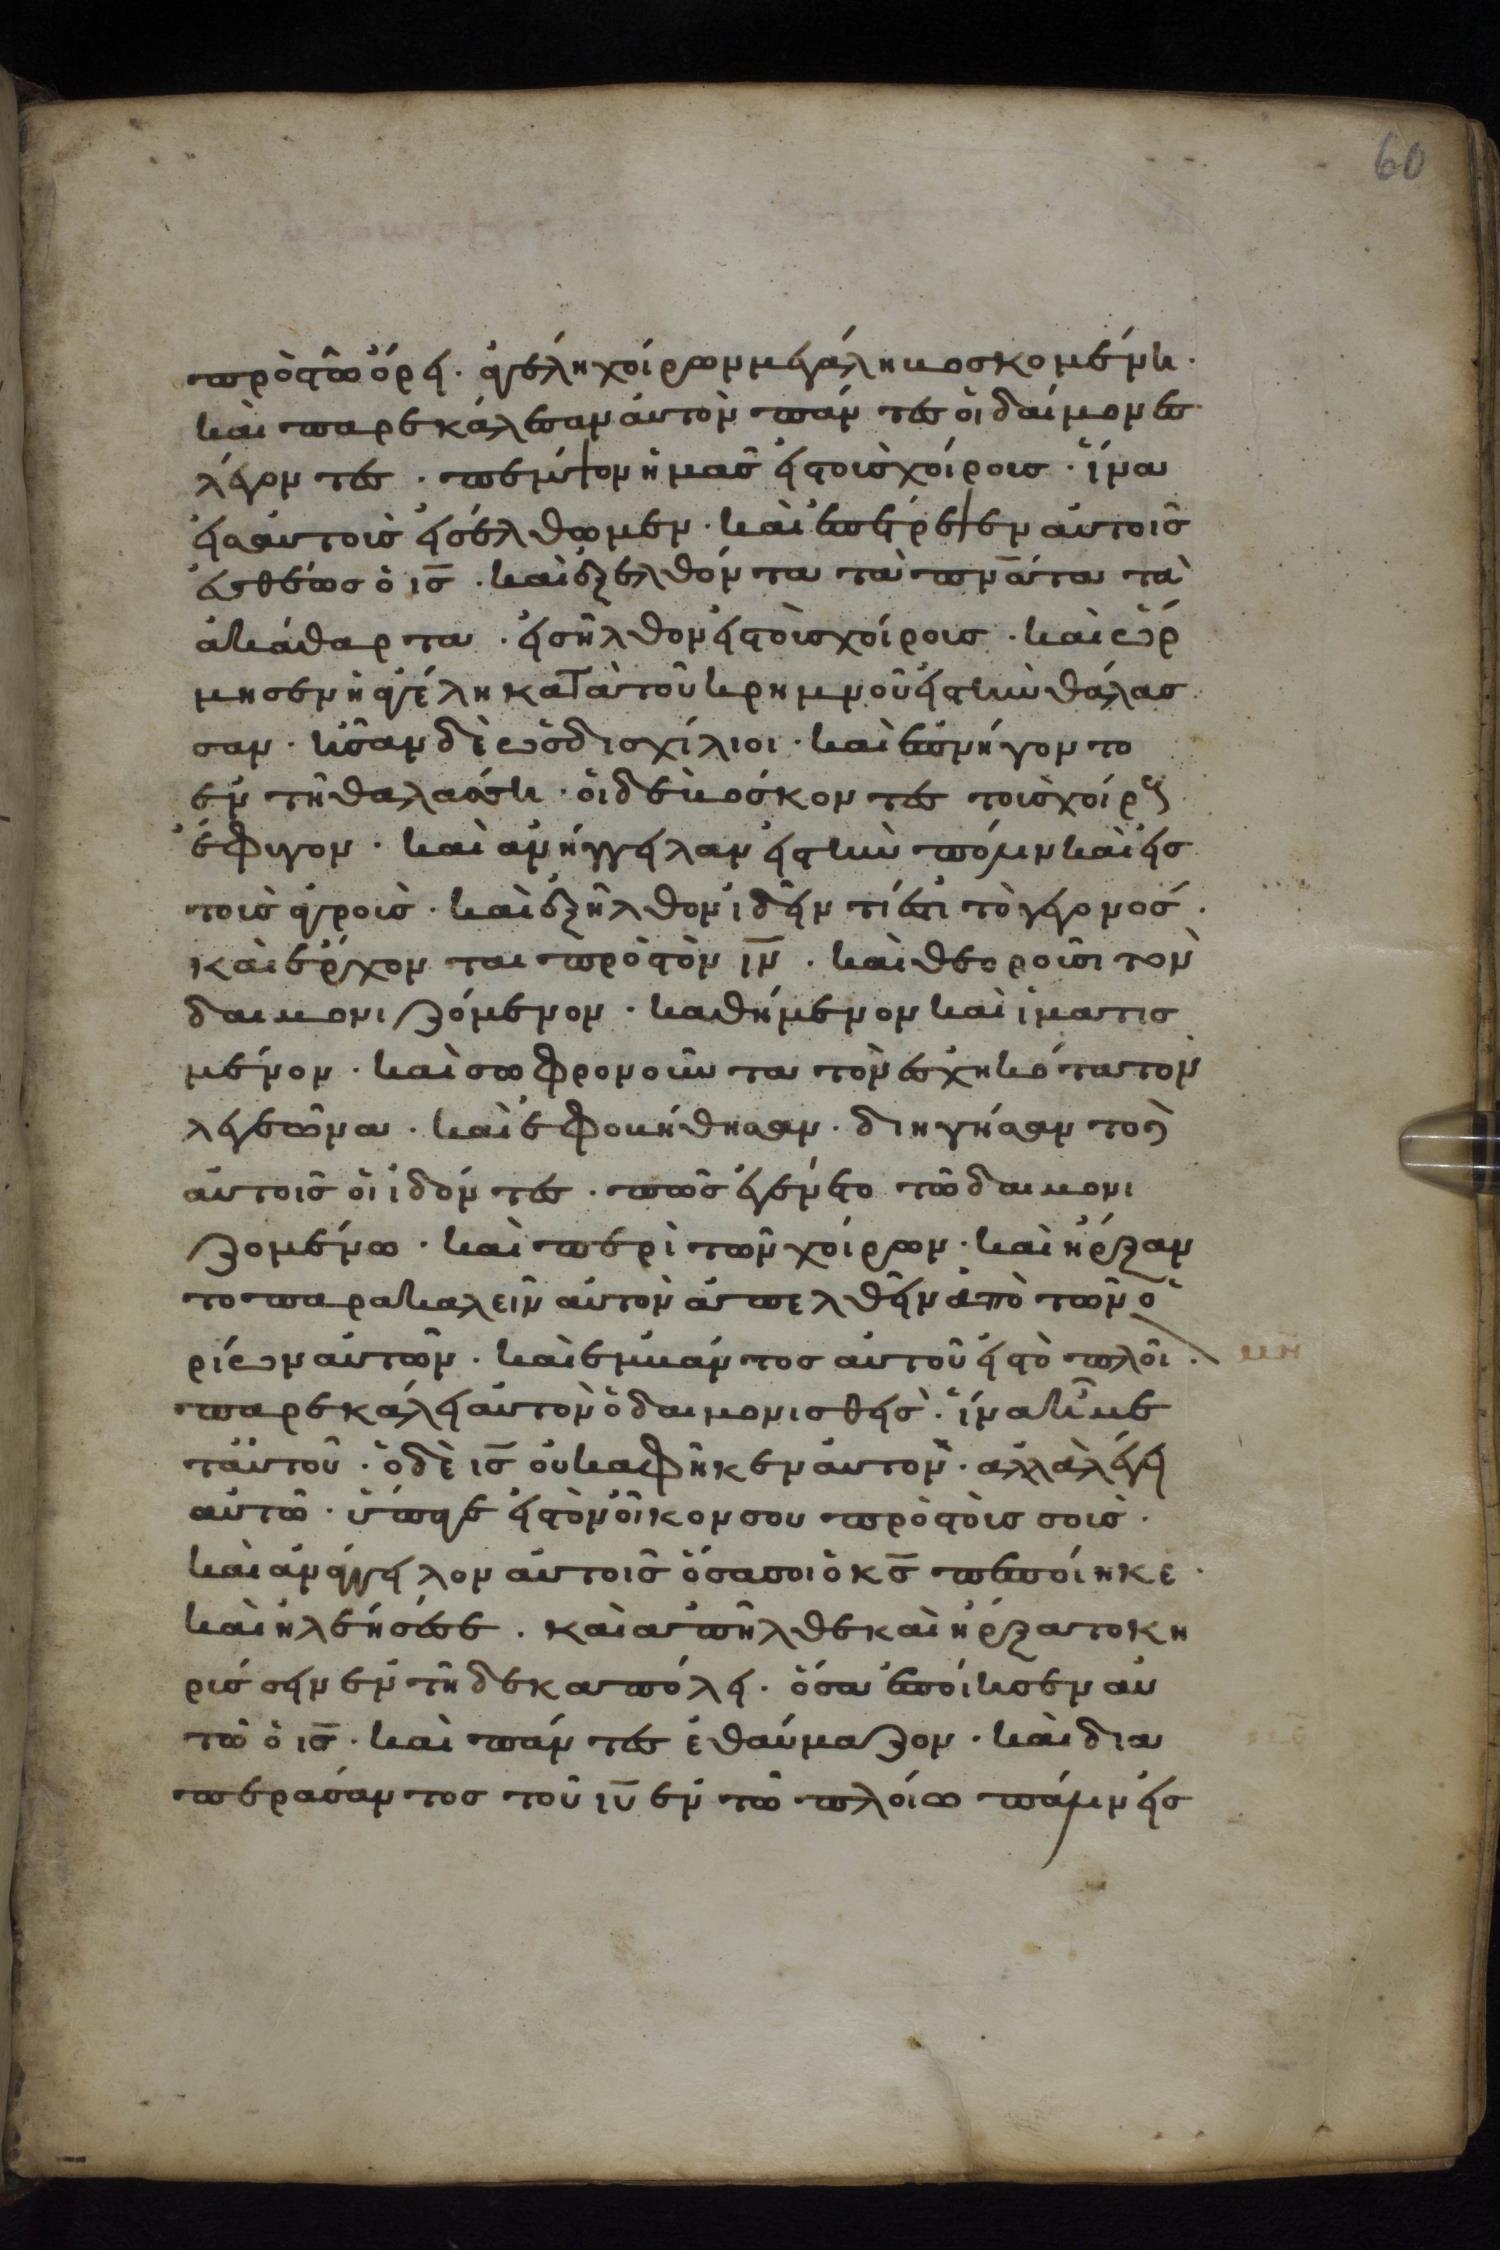 60
πρὸς τῶ ὄρει· ἀγέλη χοίρων μεγάλη βοσκομένη·
καὶ παρεκάλεσαν αὐτὸν πάντες οἱ δαίμονες
λέγοντες· πέμψον ἡμᾶς εἰς τοὶς χοίροις· ἵνα
εἰς αὐτοὶς εἰσέλθωμεν· καὶ ἐπέτρεψεν αὐτοῖς
εὐθέως ὁ ις̅· καὶ ἐξελθόντα τὰ πν̅άτα τὰ
ἀκάθαρτα· εἰσῆλθον εἰς τοὶς χοίροις· καὶ ὥρ
μησεν ἡ ἀγέλη κατὰ τοῦ κρημνοῦ εἰς τὴν θάλασ
σαν· ἦσαν δὲ ὡς δισχίλιοι· καὶ ἐπνήγοντο
ἐν τῆ θαλάσση· οἱ δὲ βόσκοντες τοὶς χοίρους
ἔφιγον· καὶ ἀνήγγειλαν εἰς τὴν πόλιν καὶ εἰς
τοὶς ἀγροὶς· καὶ ἐξῆλθον ἰδεῖν τί ἐστι τὸ γεγονός·
καὶ ἔρχονται πρὸς τὸν ιν̅· καὶ θεοροῦσι τὸν
δαιμονιζόμενον· καθήμενον καὶ ἱματισ
μένον· καὶ σωφρονοῦντα τὸν ἐσχηκότα τὸν
λεγεῶνα· καὶ ἐφοβήθησαν· διηγήσαντο
αὐτοῖς οἱ ἰδόντες· πῶς ἐγένετο τῶ δαιμονι
ζομένω· καὶ περὶ τῶν χοίρων· καὶ ἤρξαν
το παρακαλεῖν αὐτὸν ἀπελθεῖν ἀπὸ τῶν ὁ
ρίων αὐτῶν· καὶ ἐμβάντος αὐτοῦ εἰς τὸ πλοῖ·
παρεκάλει αὐτὸν ὁ δαιμονισθεὶς· ἵνα ἦ με
τ αὐτοῦ· ὁ δὲ ις̅ οὐκ αφῆκεν αὐτὸν· ἀλλὰ λέγει
αὐτῶ· ὕπαγε εἰς τὸν οἶκον σου πρὸς τοὶς σοὶς·
καὶ ἀνάγγειλον αὐτοῖς ὅσα σοι ὁ κς̅ πεποίηκε·
καὶ ἠλέησέ σε· καὶ ἀπῆλθε καὶ ἤρξατο κη
ρίσσειν ἐν τῆ δεκαπόλει· ὅσα ἐποίησεν αὐ
τῶ ὁ ις̅· καὶ πάντες ἐθαύμαζον· καὶ δια
περάσαντος τοῦ ιυ̅ ἐν τῶ πλοίω πάλιν εἰς